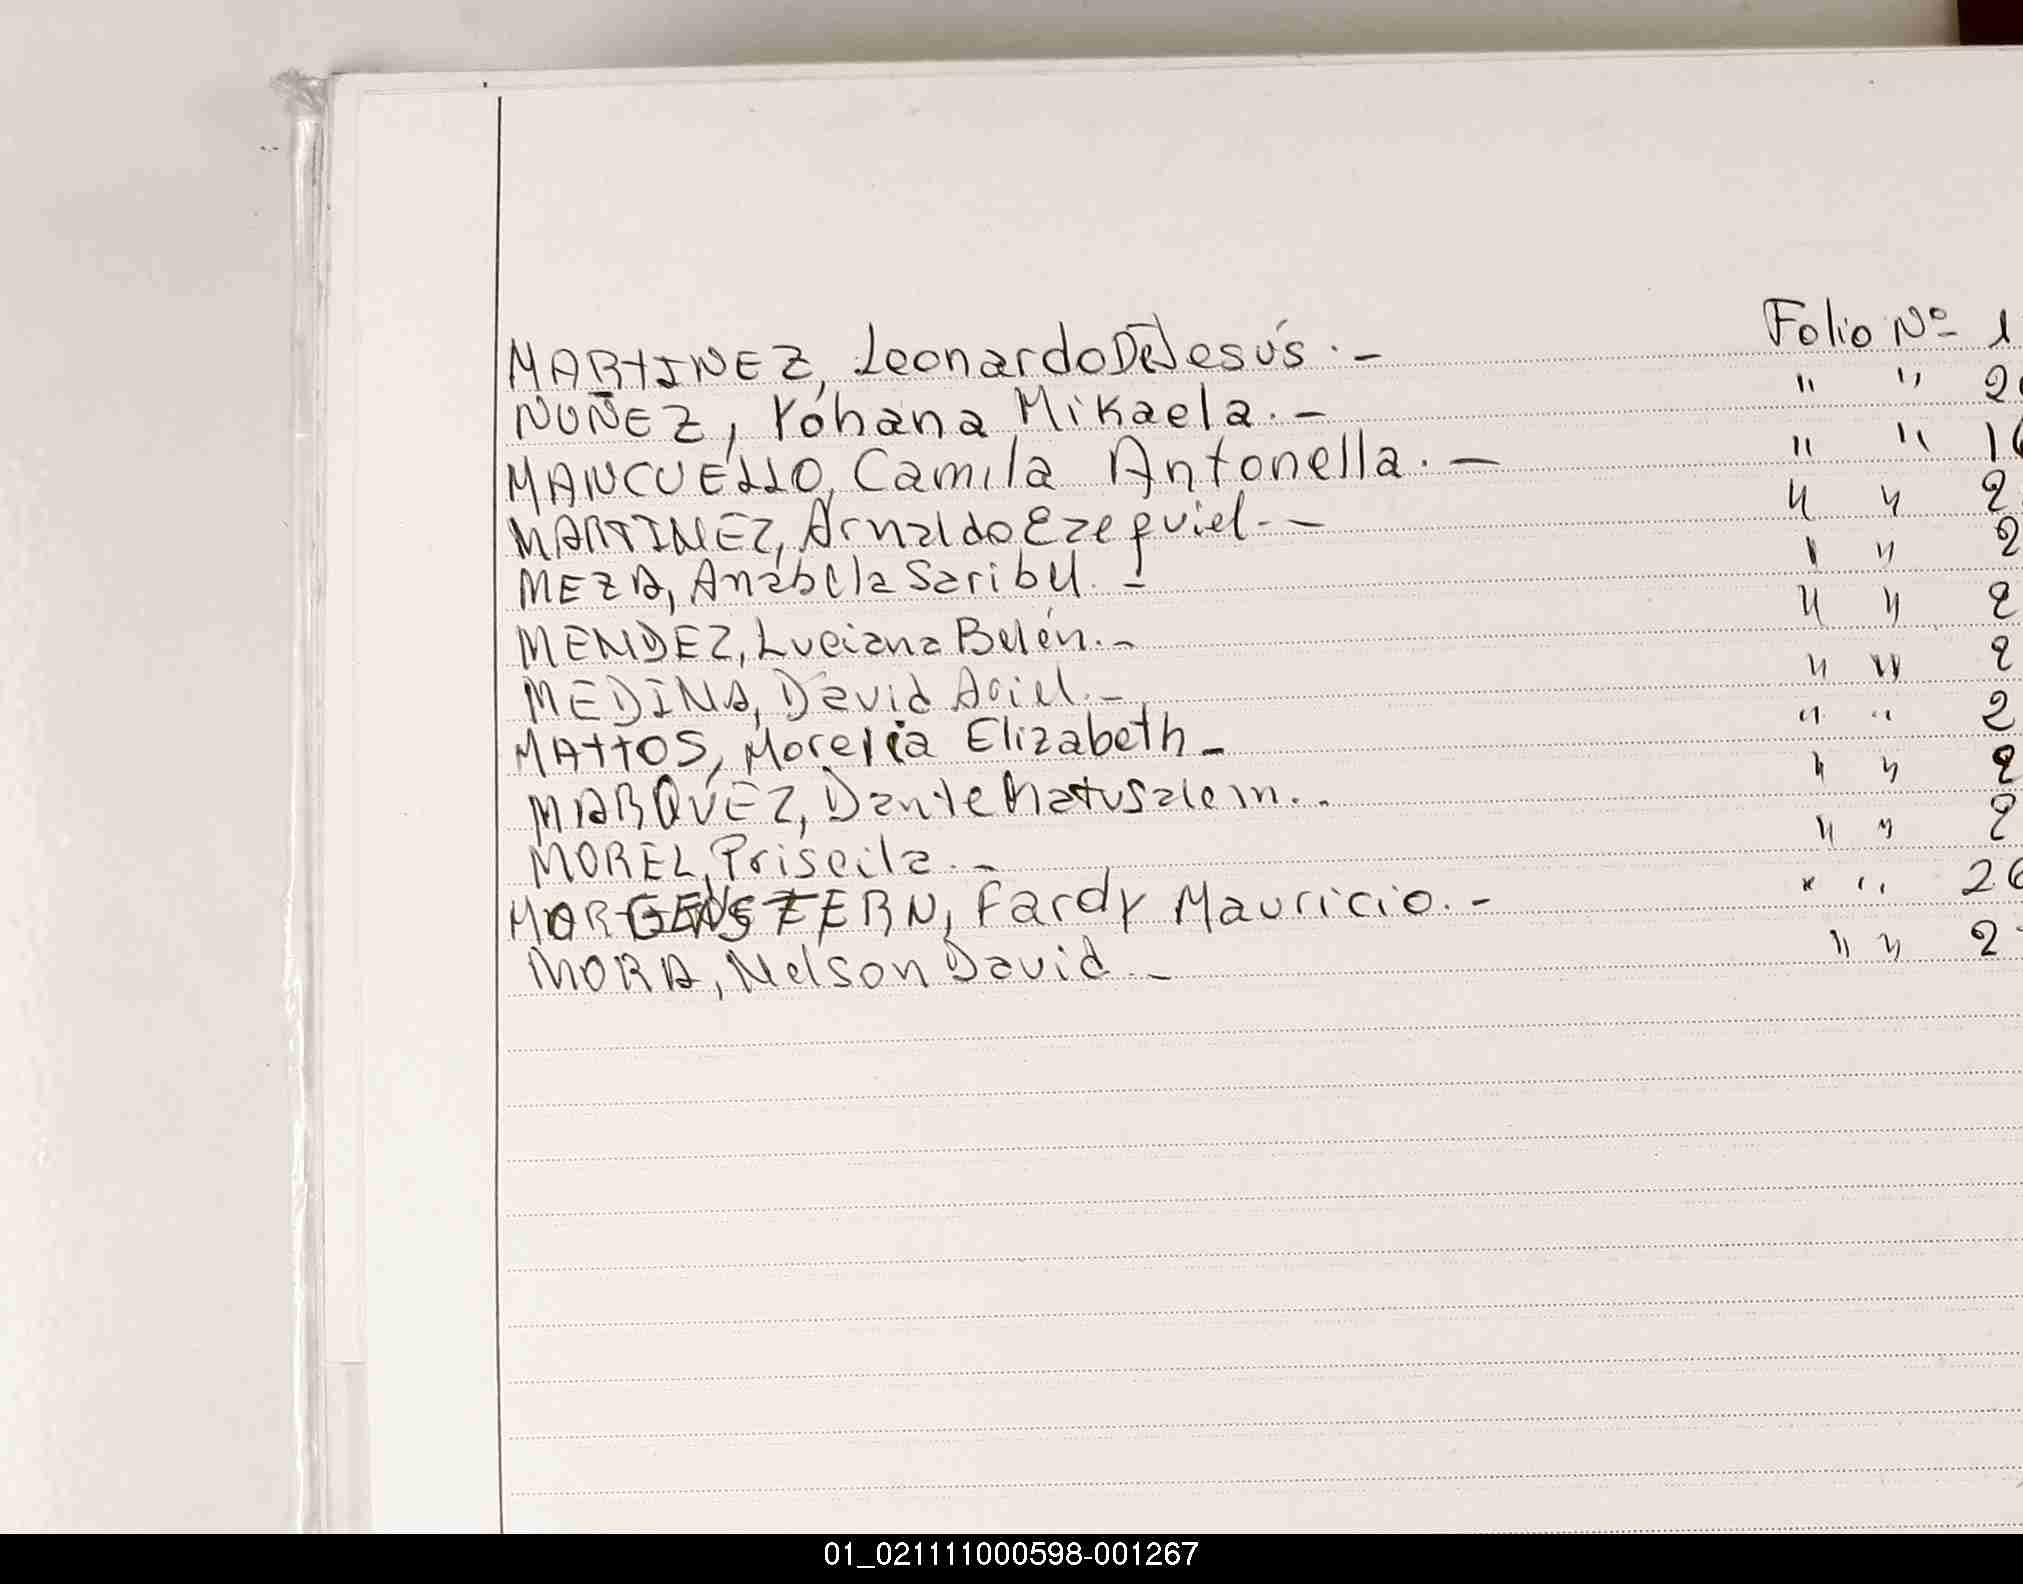 MARTINEZ, Leonardo De Jesús.- Folio Nº 1
NUÑEZ, Yohana Mikaela.- " " 2
MANCUELLO, Camila Antonella.- " " 1
MARTINEZ, Arnaldo Ezequiel.- " " 2
MEZA, Anabela Saribel.- " " 2
MENDEZ, Luciana Belén.- " " 2
MEDINA, David Ariel.- " " 2
MATTOS, Morelia Elizabeth- " " 2
MARQUEZ, Dante Matusalem.- " " 2
MOREL, Priscila.- " " 2
MORGENSTERN, Fardy Mauricio.- " " 26
MORA, Nelson David.- " " 2
01_021111000598-001267